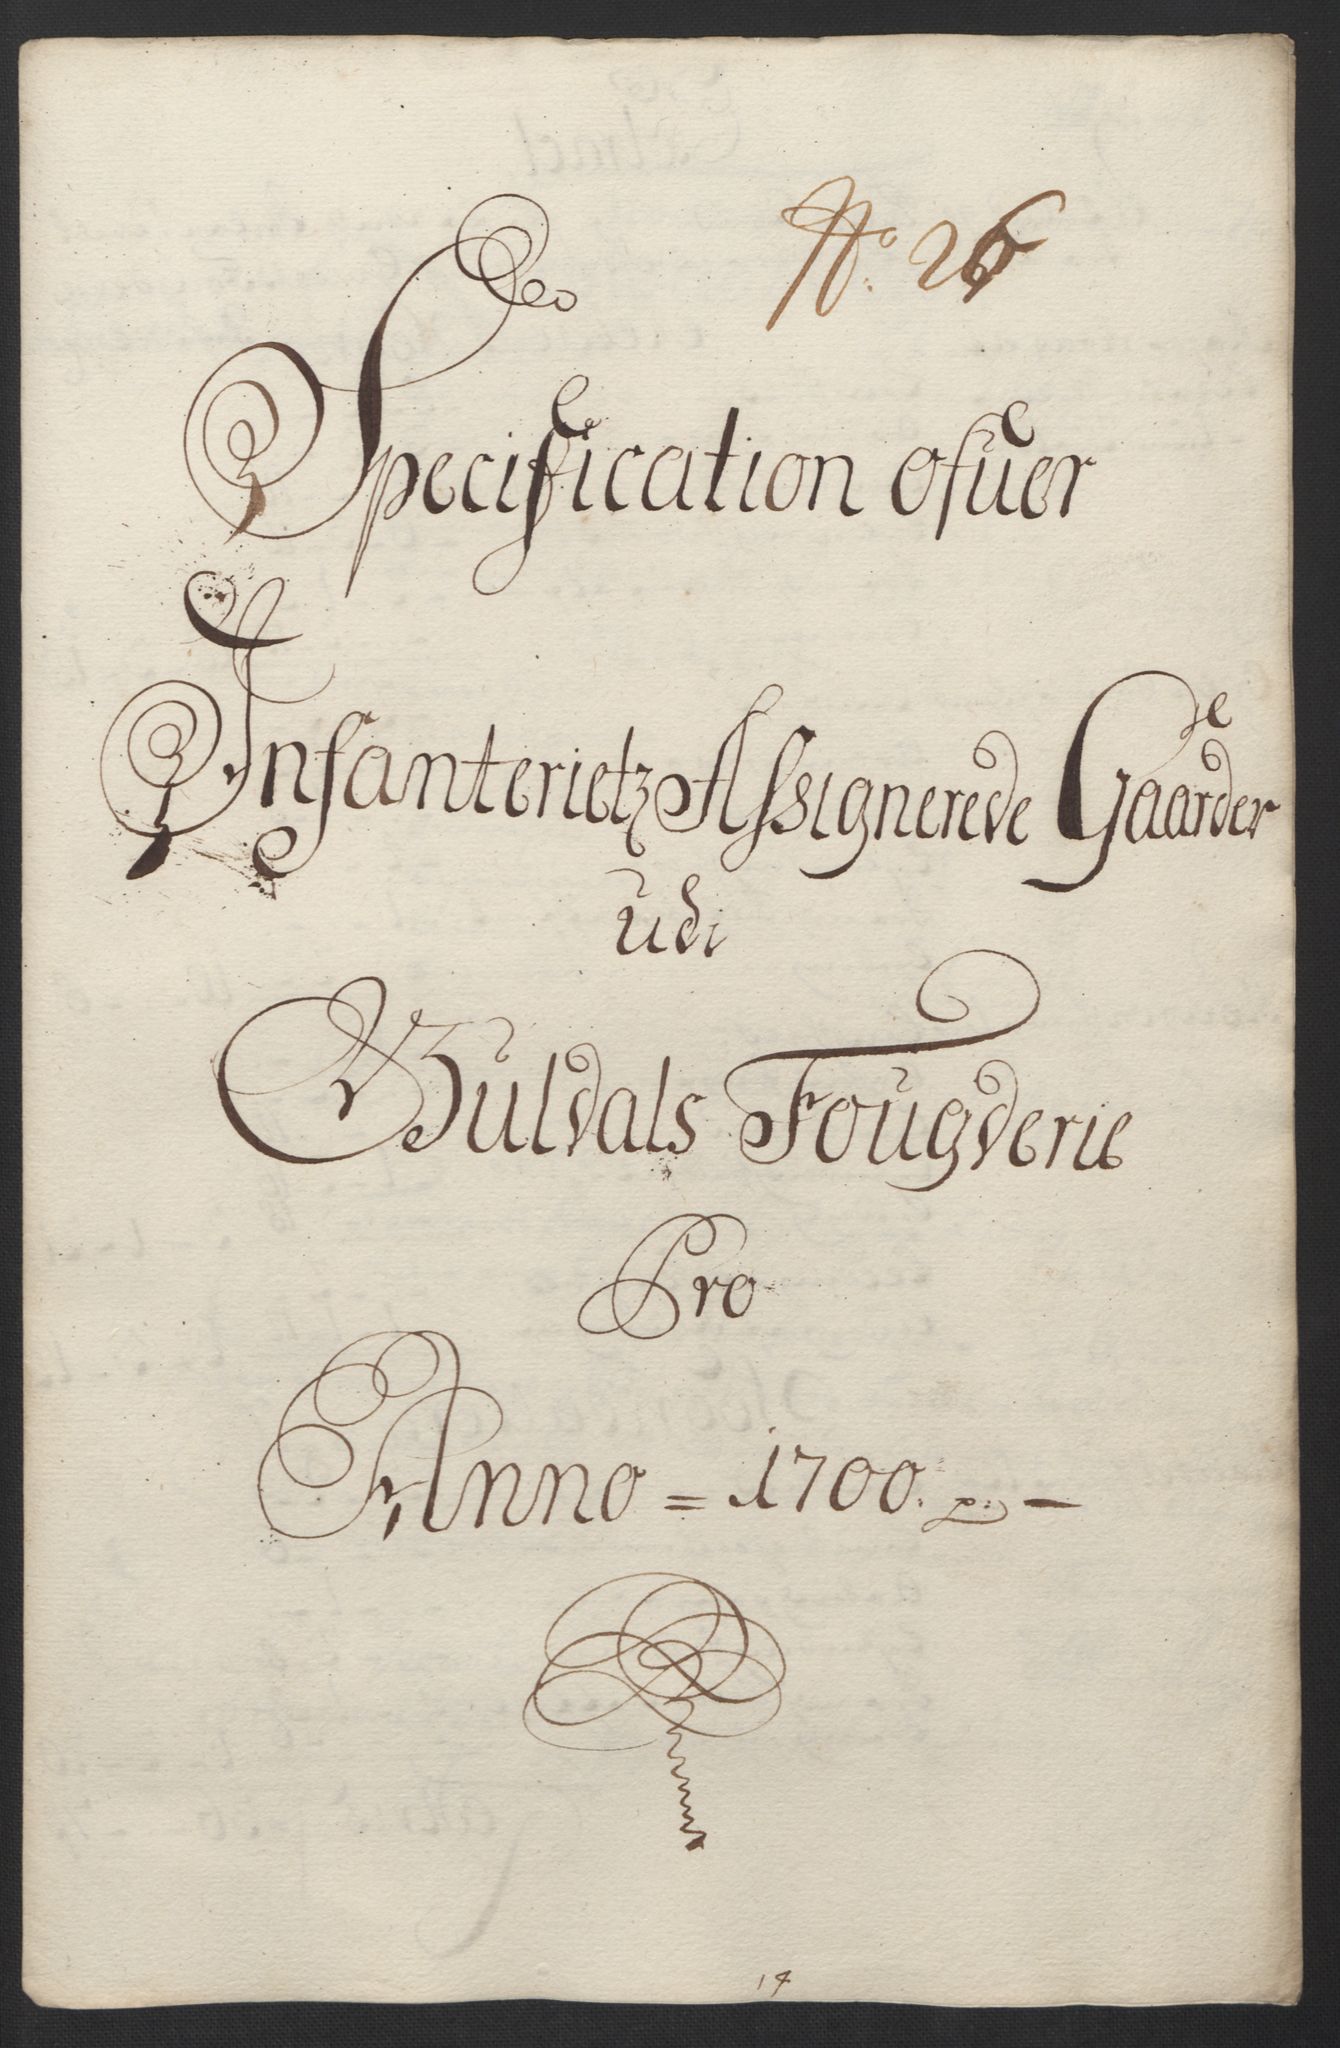 No. 26
Specification ofuer
Infanterietz Assignerede Gaarder
udi
Guldals Fougderie
Pro
Anno = 1700. –
14